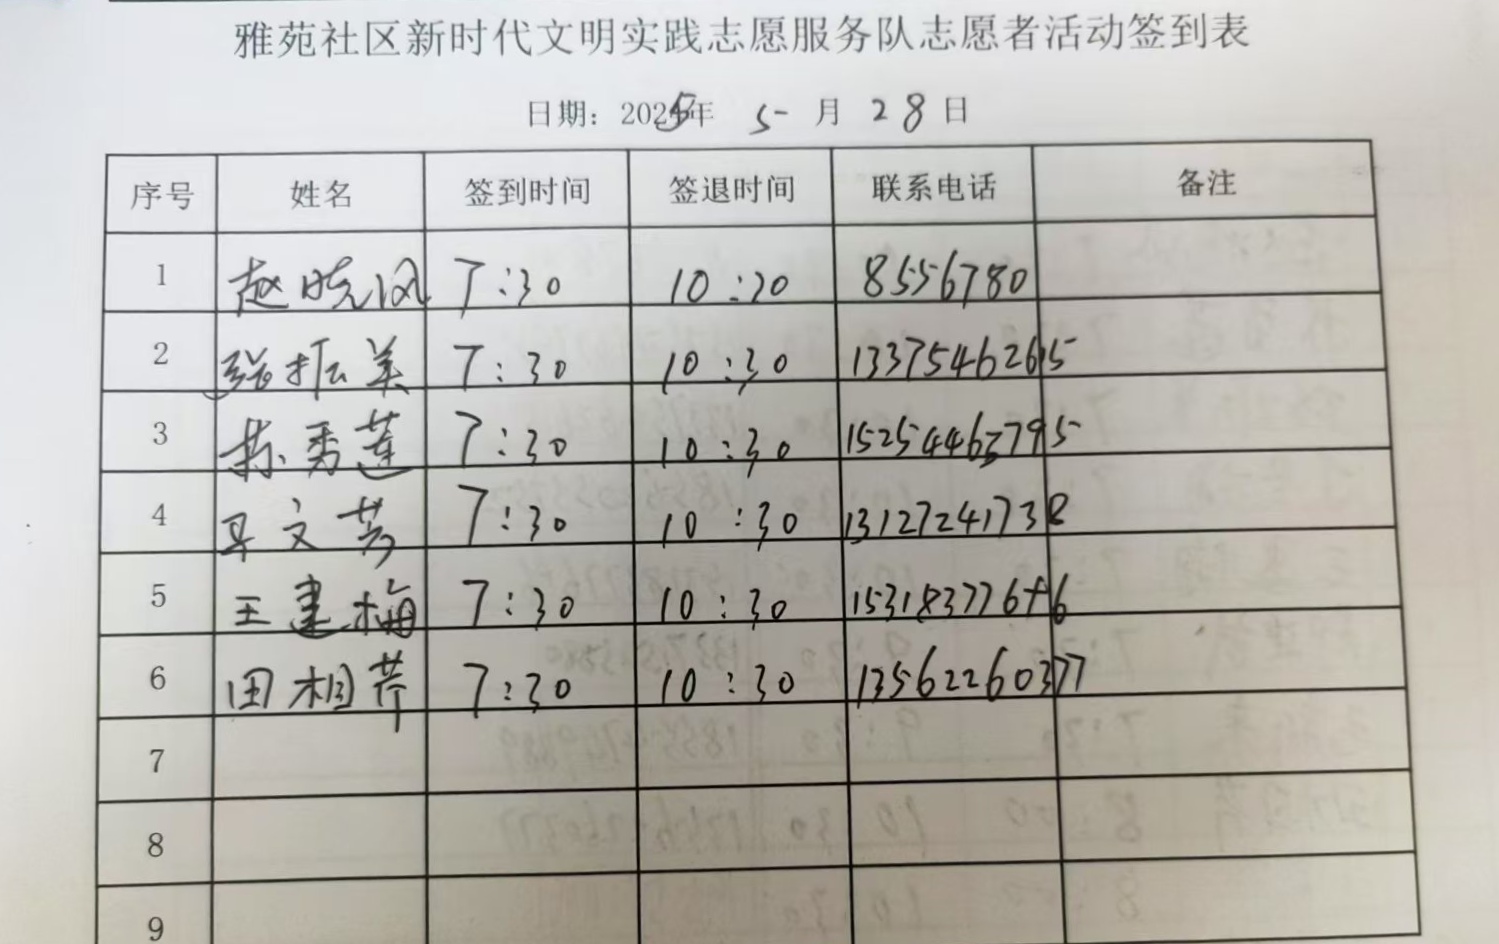 雅苑社区新时代文明实践志愿服务队志愿者活动签到表
日期：2025年 5 月 28 日
序号 姓名 签到时间 签退时间 联系电话 备注
1 赵晓风 7:30 10:30 8556780
2 张振美 7:30 10:30 13375462615
3 秀莲 7:30 10:30 15254463795
4 马文芳 7:30 10:30 13127241738
5 王建梅 7:30 10:30
6 田相芹 7:30 10:30 13562260377
7
8
9